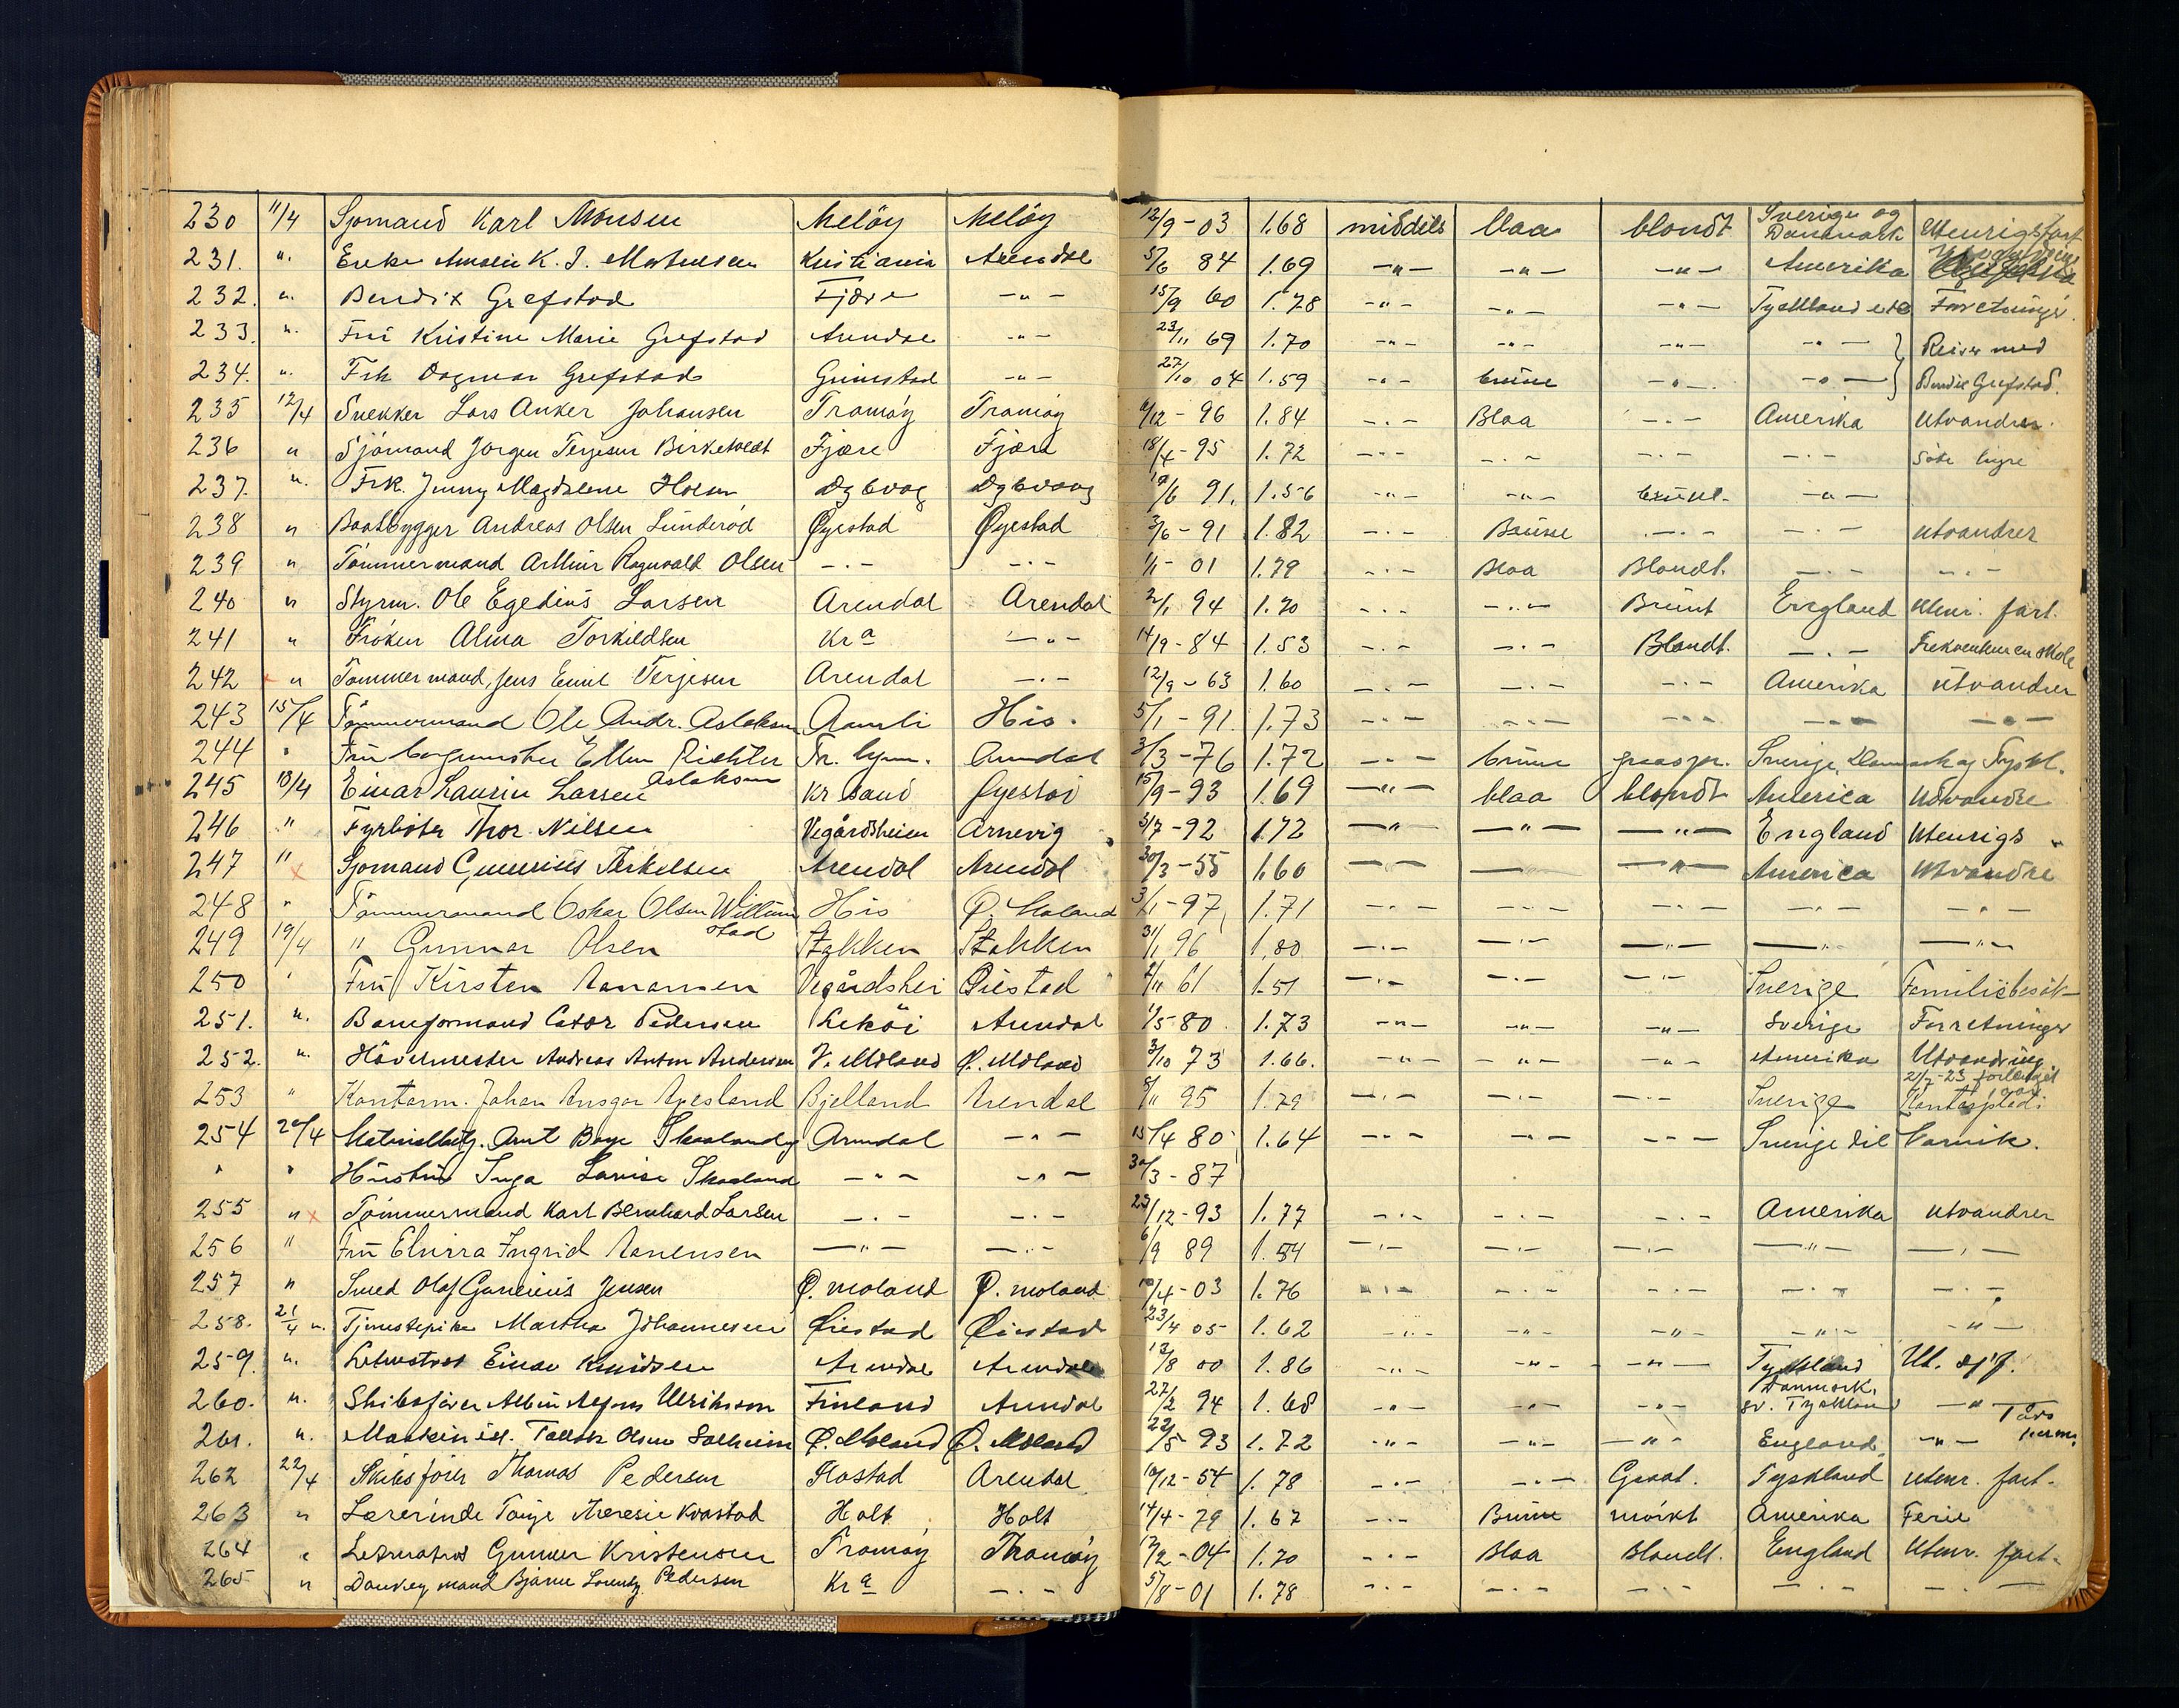 230 11/4 Sjømand Karl Monsen Meløy Meløy 12/9-03 1.68 middels blaa blondt Sverige og Danmark Utenrigsfart
231. " Enke Amalie K. J. Kristiania Arendal 5/6 84 1.69 -"- -"- -"- Amerika
232. " Bendix Grefstad Fjære -"- 15/9 60 1.78 -"- -"- -"- Tyskland etc Forretninger.
233. " Fru Kristine Marie Grefstad Arendal -"- 23/11 69 1.70 -"- -"- -"- -"- } Reiser med
234. " Frk Dagmar Grefstad Grimstad -"- 27/10 04 1.59 -"- brune -"- -"- } Bendix Grefstad.
235 12/4 Snekker Lars Anker Johansen Tromøy Tromøy 6/12-96 1.84 -"- Blaa -"- Amerika utvandrer.
236 " Sjömand Jørgen Terjesen Birketvedt Fjære Fjære 18/4-95 1.72 -"- -"- -"- -"- Søke hyre
237. " Frk. Jenny Magdalene Holm Dybvåg Dybvaag /6 91. 1.56 -"- -"- brunt. -"-
238 " Baatbygger Andreas Olsen Lunderød Øyestad Øyestad 3/6-91 1.82 -"- Brune -"- -"- utvandrer
239 " Tømmermand Arthur Ragnvald Olsen -"- -"- 1/1-01 1.79 -"- Blaa Blondt. -"- -"-
240 " Styrm. Ole Egedius Larsen Arendal Arendal 2/1 94 1.70 -"- -"- Brunt England Utenr. fart.
241 " Frøken Alma Torkildsen Kra -"- 14/9-84 1.53 -"- -"- Blondt. -"- Frekventere en skole
242 " Tømmermand, Jens Emil Terjesen Arendal -"- 12/9-63 1.60 -"- -"- -"- Amerika utvandrer
243 15/4 Tømmermand Ole Andr. Aslaksen Aamli His. 5/1-91. 1.73 -"- -"- -"- -"- -"-
244 " Fru borgermester Ellen Richter Tr. hjem. Arendal 3/3-76 1.72 -"- brune graaspr. Sverige, Danmark og Tyskl.
245 18/4 Einar Laurin Larsen Aslaksen Kr sand Øyestad 15/9-93 1.69 -"- blaa blondt America Udvandre
246 " Fyrbøter Thor Nilsen Vegårdsheien Arnevig 3/7-92 1.72 -"- -"- -"- England Utenrigs "
247 " Sjomand Gunerius Terkelsen Arendal Arendal 30/3-55 1.60 -"- — -"- America Utvandre
248 " Tømmermand Oskar Olsen Willum stad His Ø. Moland 3/1-97 1.71 -"- -"- -"- -"- -"-
249 19/4 " Gunnar Olsen Stokken Stokken 31/1 96 1.80 -"- -"- -"- -"- -"-
250 " Fru Kirsten Aanonsen Vegårdshei Øiestad 2/11 61 1.51 -"- -"- -"- Sverige Familiebesøk
251. " Baneformand Castor Pedersen Arendal 1/5-80. 1.73 -"- -"- -"- Sverige Forretninger
252. " Hovmester Andreas Anton Andersen V. Moland Ø. Moland 3/10 73 1.66. -"- -"- -"- Amerika Utvandring
21/7-23 forlenget
253 " Kontorm. Johan Ansgar Ajesland Bjelland Arendal 8/11 95 1.79 -"- -"- -"- Sverige
254 20/4 Arnt Boye Skaaland Arendal -"- 15/4 80 1.64 -"- -"- -"- Sverige til
" " Hustru Inga Lovise Skaaland -"- -"- 30/3-87
255 " Tømmermand Karl Bernhard Larsen -"- -"- 23/12-93 1.77 -"- -"- -"- Amerika utvandrer
256 " Fru Elvira Ingrid Aanensen -"- -"- 6/9 89 1.54 -"- -"- -"- -"- -"-
257 " Smed Olaf Gunerius Jensen Ø. moland Ø. moland 10/4-03 1.76 -"- -"- -"- -"- -"-
258. 21/4 " Tjenestepike Martha Johannesen Øiestad Øiestad 23/4 05 1.62 -"- -"- -"- -"- -"-
259. " Letmatros Einar Knudsen Arendal Arendal 13/8 00 1.86 -"- -"- -"- Tyskland Ut. sjf.
260. " Skibsfører Albin Alfons Ulriksson Finland Arendal 27/2 94 1.68 -"- -"- -"- Danmark, Sv. Tyskland -"-
261. " Maskinist. Tallak Olsen Solheim Ø. Moland Ø. Moland 22/5 93 1.72 -"- -"- -"- England -"-
262 22/4 Skibsfører Thomas Pedersen Flostad Arendal 10/12-54 1.78 -"- -"- Graat. Tyskland utenr. fart.
263 " Lærerinde Tonje Theresie Kvastad Holt Holt 14/4-79 1.67 -"- Brune mørkt Amerika Ferie
264 " Letmatros Gunnar Kristensen Tromøy Tromøy 17/2-04 1.70 -"- Blaa Blondt. England Utenr. fart.
265 " Donkeymand Bjarne Lorentz Pedersen Kra -"- 5/8-01 1.78 -"- -"- -"- -"- -"-